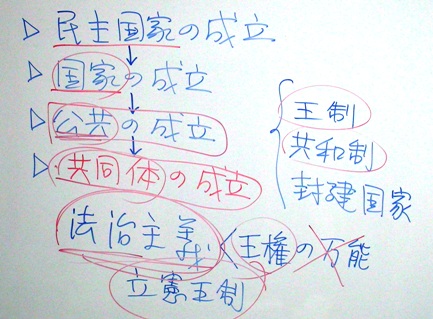 ▷ 民主国家の成立
▷ 国家の成立
▷ 公共の成立
▷ 共同体の成立
王制
共和制
封建国家
法治主義 < 王権の万能
立憲王制